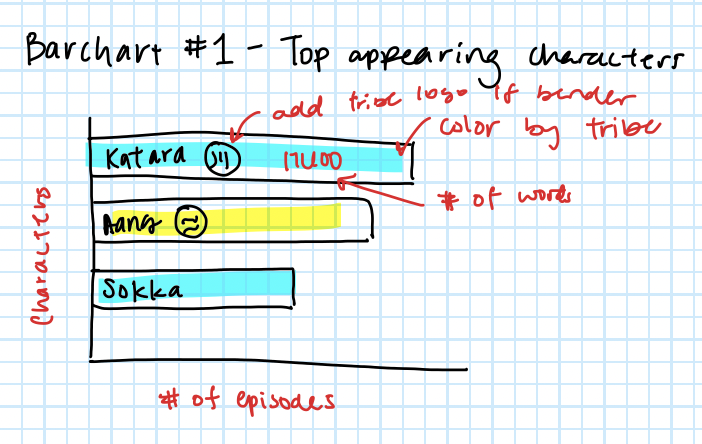 Barchart #1 - Top appearing characters
add tribe logo if bender
color by tribe
Katara 17400
# of words
Aang
Sokka
Characters
# of episodes